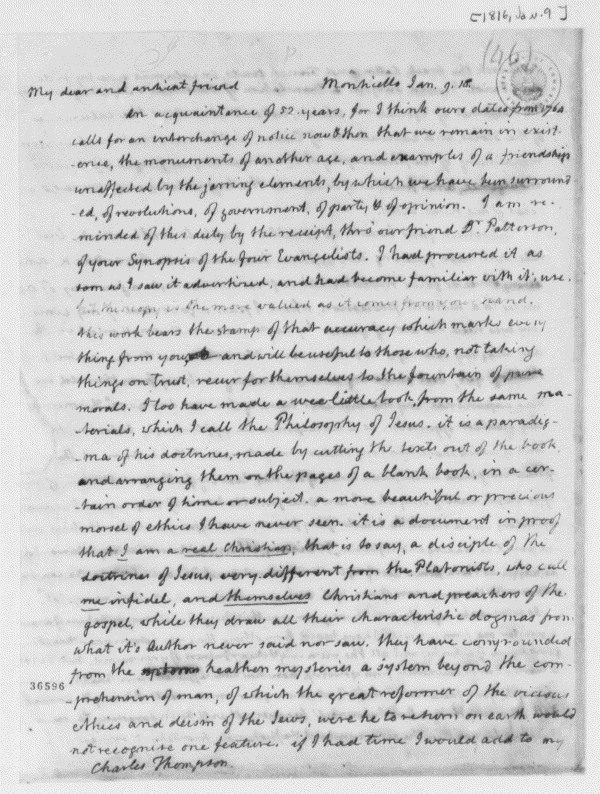 [1816, Jan. 9]
(96)
My dear and antient friend Monticello Jan. 9. 16.
An acquaintance of 52. years, for I think ours dates from 1764.
calls for an interchange of notice now & then that we remain in exist-
-ence, the monuments of another age, and examples of a friendship
unaffected by the jarring elements, by which we have been surround-
-ed, of revolutions, of government, of party & of opinion. I am re-
-minded of this duty by the receipt, thro' our friend Dr. Patterson,
of your Synopsis of the four Evangelists. I had procured it as
soon as I saw it advertized, and had become familiar with it's use.
but this copy is the more valued as it comes from your hand.
this work bears the stamp of that accuracy which marks every
thing from you and will be useful to those who, not taking
things on trust, recur for themselves to the fountain of pure
morals. I too have made a wee little book, from the same ma-
-terials, which I call the Philosophy of Jesus. it is a paradig-
-ma of his doctrines, made by cutting the texts out of the book,
and arranging them on the pages of a blank book, in a cer-
-tain order of time or subject. a more beautiful or precious
morsel of ethics I have never seen. it is a document in proof
that I am a real Christian, that is to say, a disciple of the
doctrines of Jesus, very different from the Platonists, who call
me infidel, and themselves Christians and preachers of the
gospel, while they draw all their characteristic dogmas from
what it's Author never said nor saw. they have compounded
from the heathen mysteries a system beyond the com-
36596
-prehension of man, of which the great reformer of the vicious
ethics and deism of the Jews, were he to return on earth would
not recognise one feature. if I had time I would add to my
Charles Thompson.